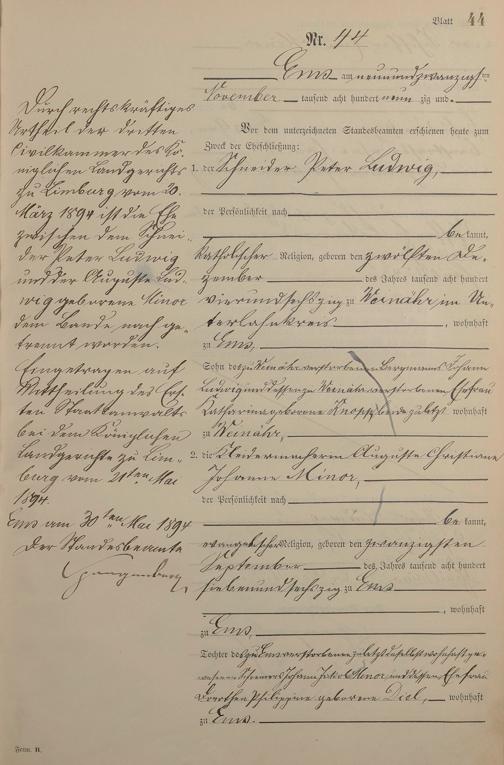 Blatt 44
Nr. 44
Ems am neunundzwanzigsten
November tausend acht hundert neunzig und
Vor dem unterzeichneten Standesbeamten erschienen heute zum
Zweck der Eheschließung:
1. der Schneider Peter Ludwig,
der Persönlichkeit nach
bekannt,
katholischer Religion, geboren den zwölften De-
zember des Jahres tausend acht hundert
vierundsechszig zu Weinähr im Un-
terlahnkreis, wohnhaft
zu Ems,
Sohn des zu Weinähr verstorbenen Bergmanns Johann
Ludwig und dessen zu Weinähr verstorbenen Ehefrau
Katharina geborene beide zuletzt wohnhaft
zu Weinähr,
2. die Kleidermacherin Auguste Christiane
Johanne Minor,
der Persönlichkeit nach
bekannt,
evangelischer Religion, geboren den zwanzigsten
September des Jahres tausend acht hundert
siebenundsechszig zu Ems
, wohnhaft
zu Ems,
Tochter des zu Ems verstorbenen zuletzt daselbst wohnhaft ge-
wesenen Schreiners Johann Jakob Minor und dessen Ehefrau
Dorothea Philippine geborene Diel, wohnhaft
zu Ems.
Durch rechtskräftiges
Urtheil der dritten
Civilkammer des Kö-
niglichen Landgerichts
zu Limburg vom 20.
März 1894 ist die Ehe
zwischen dem Schnei-
der Peter Ludwig
und der Auguste Lud-
wig geborene Minor
dem Bande nach ge-
trennt worden.
Eingetragen auf
Mittheilung des Ers-
ten Staatsanwalts
bei dem Königlichen
Landgerichte zu Lim-
burg vom 21ten Mai
1894.
Ems am 30ten Mai 1894
Der Standesbeamte
Form. B.